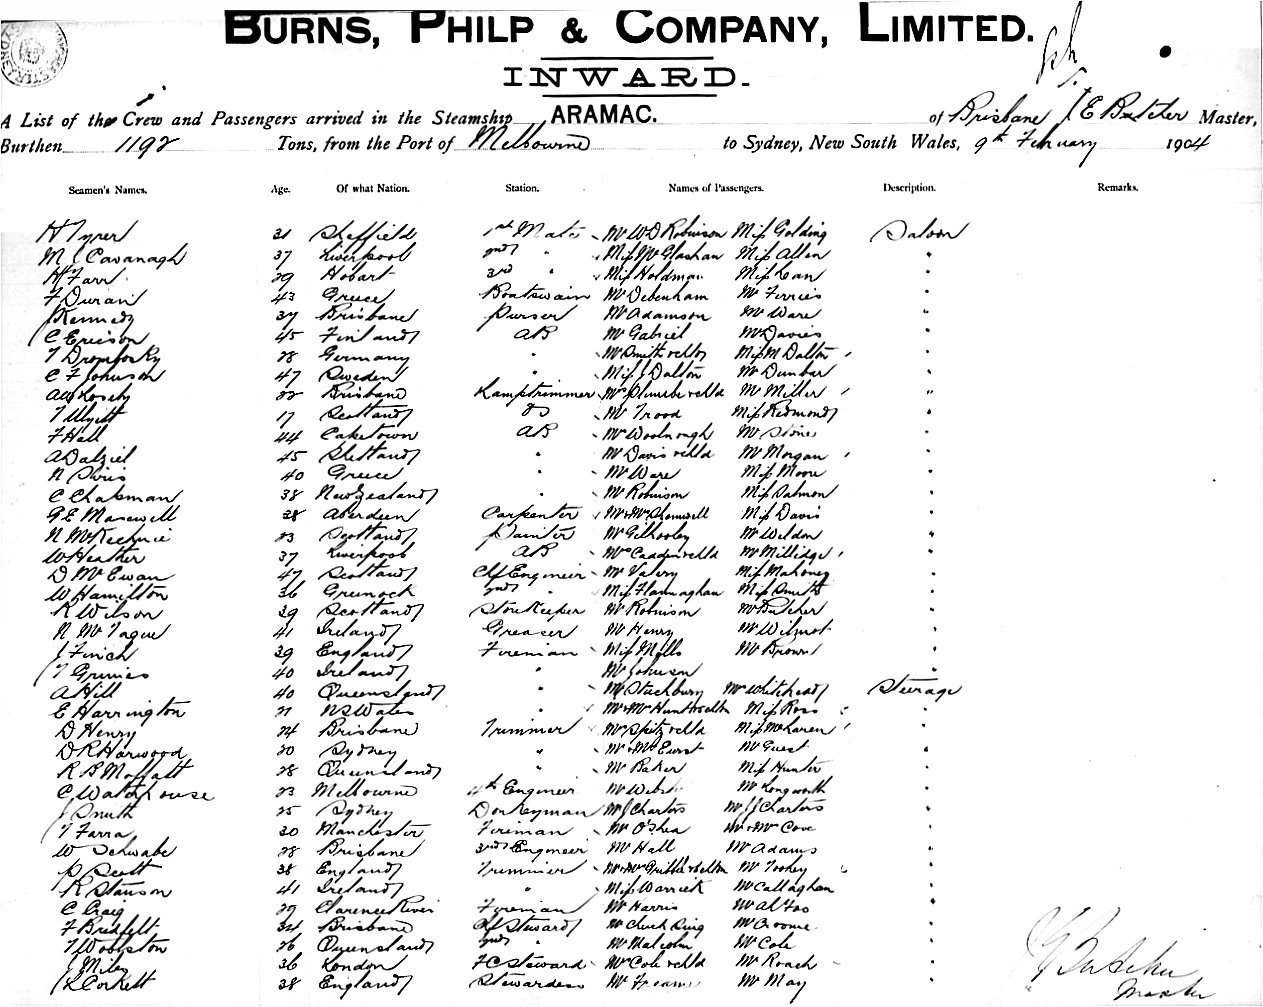 BURNS, PHILP & COMPANY, LIMITED.
INWARD.
A List of the Crew and Passengers arrived in the Steamship ARAMAC. of Brisbane J E Butcher Master,
Burthen 1192 Tons, from the Port of Melbourne to Sydney, New South Wales, 9th February 1904
Seamen's Names. Age. Of what Nation. Station. Names of Passengers. Description. Remarks.
H Tyrer 31 Sheffield 1st Mate Mr W D Robinson Miss Golding Saloon
M J Cavanagh 37 Liverpool 2nd " Miss McGlashan Miss Allen "
H Farr 29 Hobart 3rd " Miss Holdman Miss "
F Duran 43 Greece Boatswain Mr Debenham Mr Ferries "
J Kennedy 37 Brisbane Purser Mr Adamson Mr Ware "
C Ericson 45 Finland AB Mr Gabriel Mr Davies "
T 28 Germany " Mr Smith & chld Miss M Dalton "
C F Johnson 47 Sweden " Miss J Dalton Mr Dunbar "
22 Brisbane Lamptrimmer & chld Mr Miller "
T 17 Scotland do Mr Trood Miss Redmond "
F Hall 44 AB Mr Woolnough Mr Stone "
A Dalziel 45 Shetland " Mr Davis & chld Mr Morgan "
N 40 Greece " Mr Ware Miss Moore "
C Chapman 38 New Zealand " Mr Robinson Miss Salmon "
G E Maxwell 28 Aberdeen Carpenter Mr & Mrs Miss Davis "
N McKechnie 23 Scotland Painter Mr Gilhooley Mr Weldon "
W Heather 37 Liverpool AB Mrs Cadden & chld Mr Millidge "
D McEwan 47 Scotland Chf Engineer Mr Valery Miss Mahoney "
W Hamilton 36 Greenock 2nd " Miss Flannaghan Miss Smith "
R Wilson 29 Scotland Storekeeper Mr Robinson Mr Butcher "
N McTague 41 Ireland Greaser Mr Henry Mr Wilmot "
J Finch 29 England Fireman Miss Mills Mr Brown "
T Grimes 40 Ireland " Mr Johnson "
A Hill 40 Queensland " Mr Stuchbury Mr Whitehead Steerage
E Harrington 21 N S Wales " Mr & Mrs Hunt & chldn Miss Ross "
D Henry 24 Brisbane Trimmer Mrs Spitz & chld Miss McLaren "
D R Harwood 20 Sydney " Mr & Mrs Mr Guest "
R B Moffatt 28 Queensland " Mr Baker Miss Hunter "
C Waterhouse 23 Melbourne 4th Engineer Mr Mr Longworth "
J Smith 25 Sydney Donkeyman Mr J Charters Mr J J Charters "
T Farra 30 Manchester Fireman Mr O'Shea Mr & Mrs Cove "
W Schwabe 28 Brisbane 3rd Engineer Mr Hall Mr Adams "
P Scott 38 England Trimmer Mr & Mrs Gribble & chldn Mr Tookey "
R Stanson 41 Ireland " Miss Warrick Mr Callaghan "
C Craig 29 Clarence River Fireman Mr Harris Mr Ah Foo "
F Bredfelt 34 Brisbane Chf Steward Mr Chuck King Mr Croome "
T Woolston 26 Queensland 2nd " Mr Malcolm Mr Cole "
J Miley 36 London F C Steward Mrs Cole & chld Mr Roach "
L Corkett 38 England Stewardess Mr Freame Mr May "
J E Butcher
Master